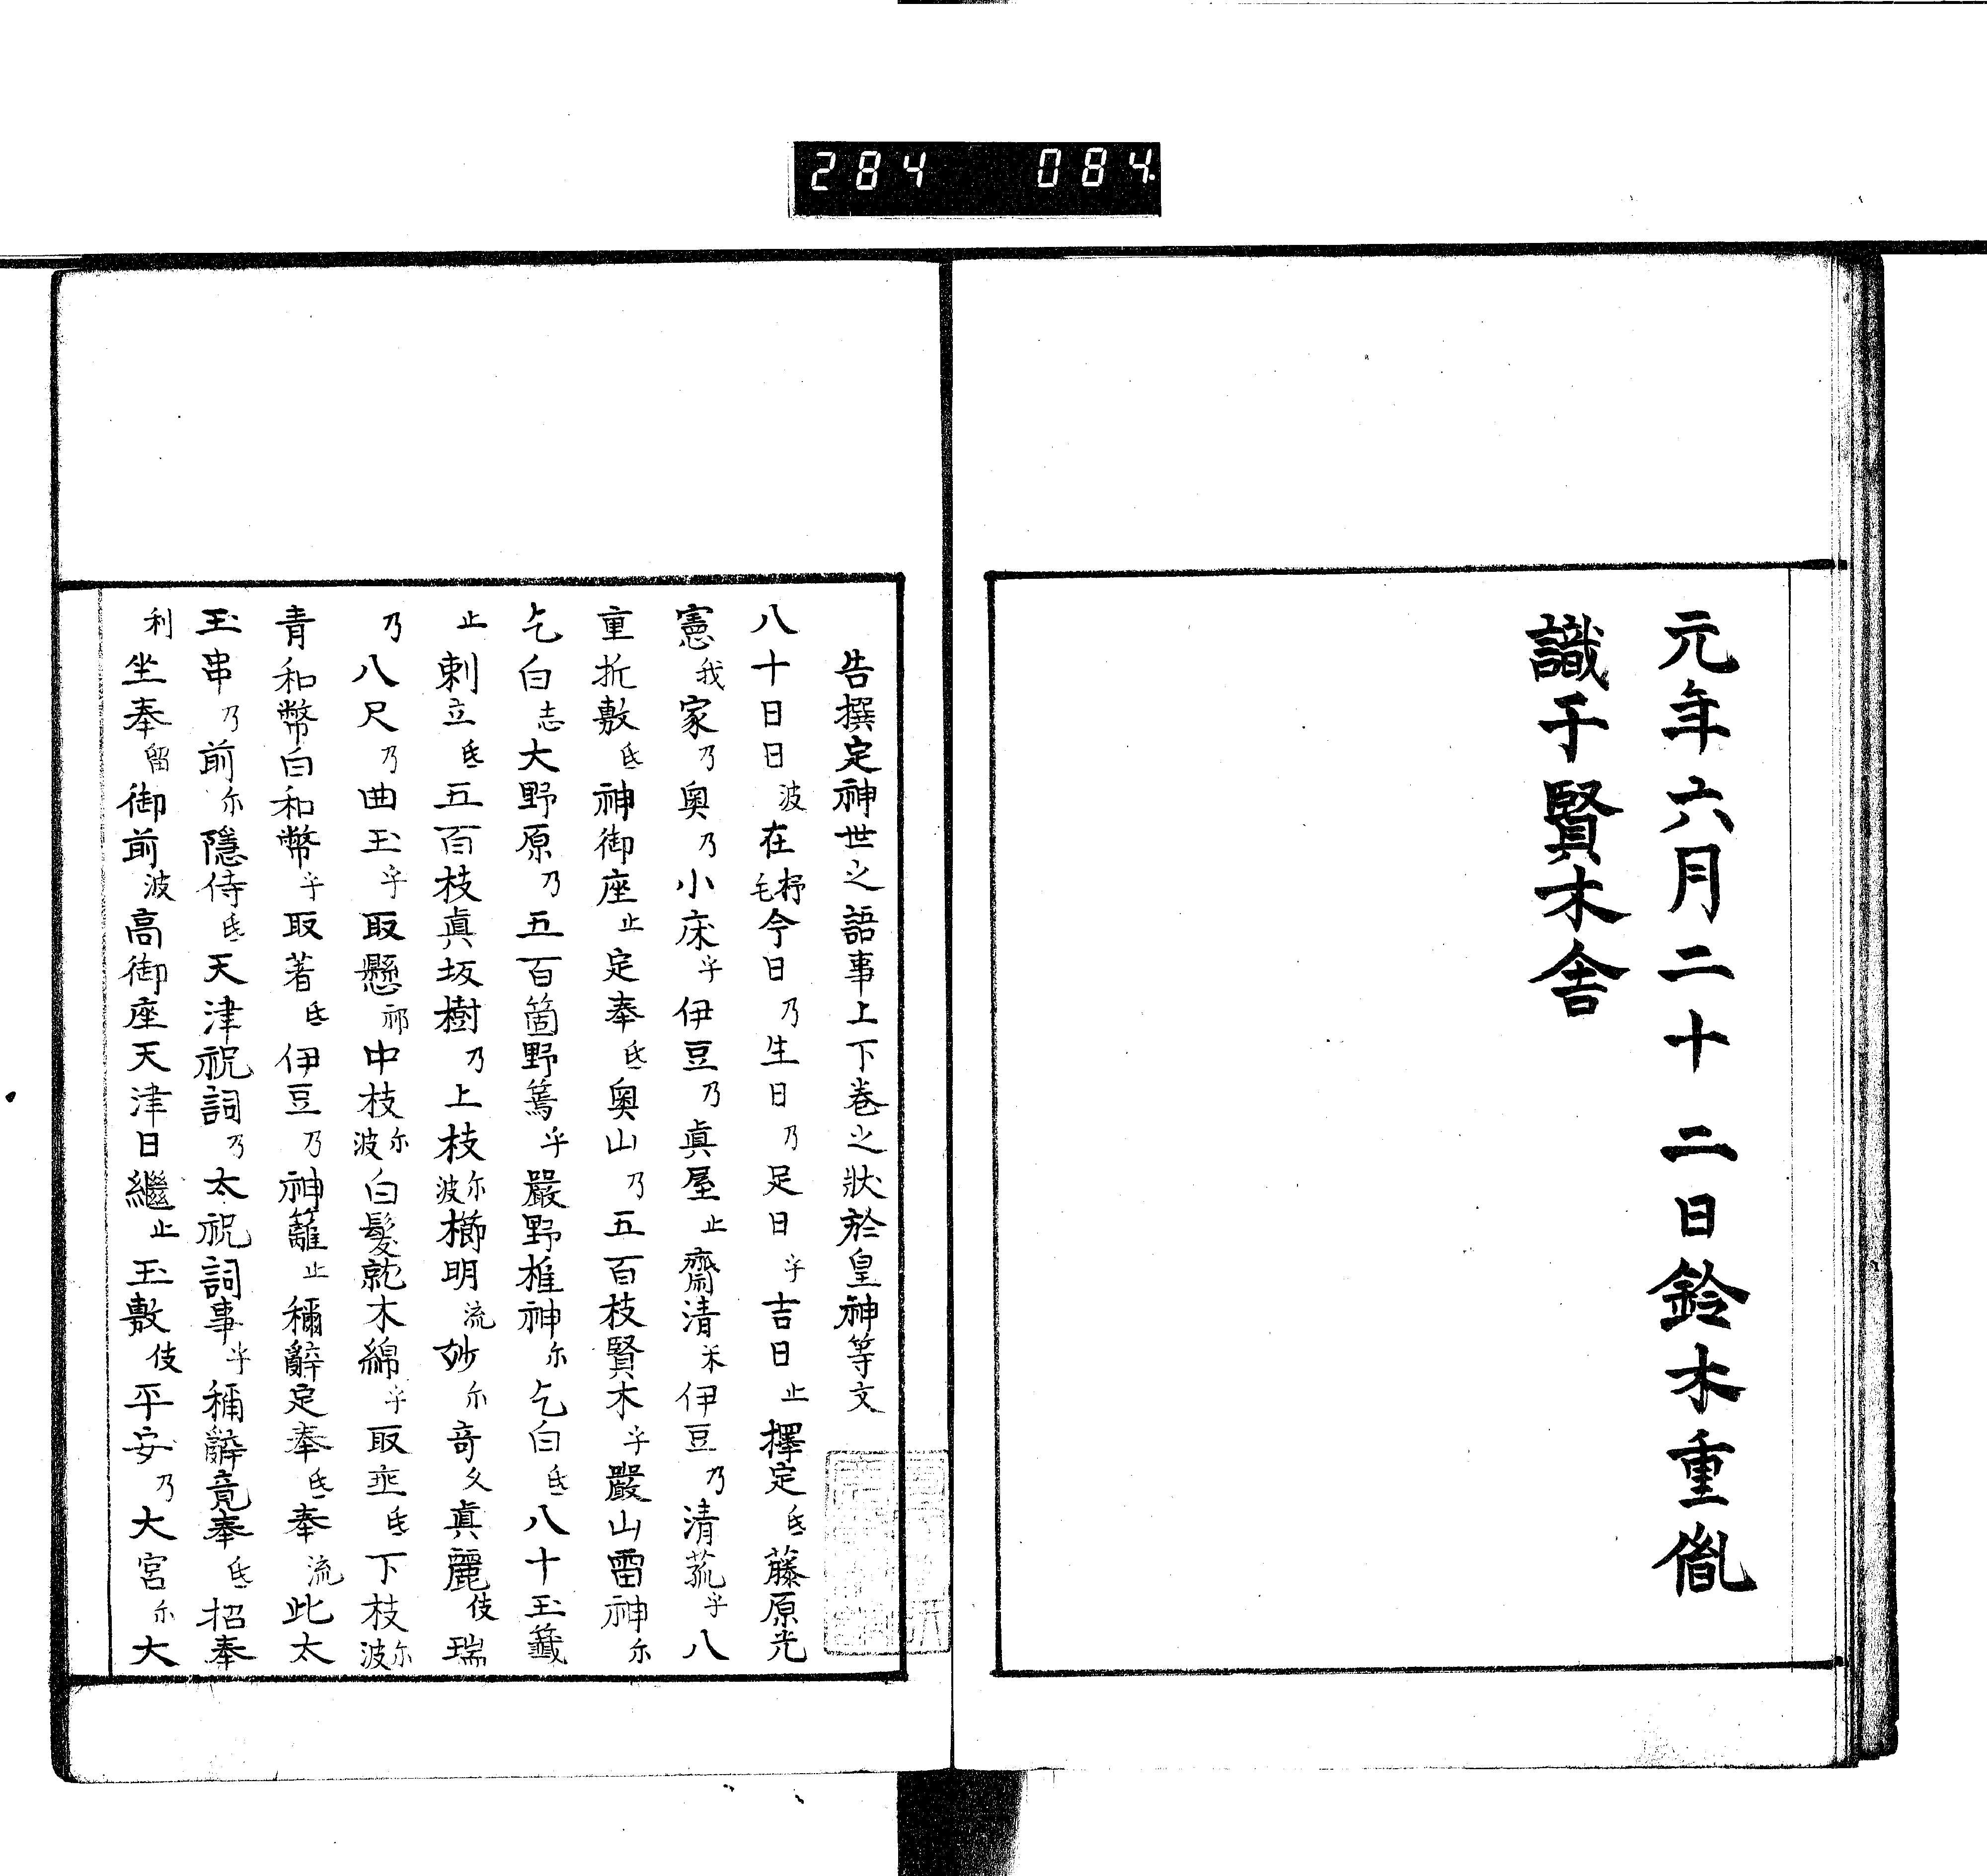 284 084.
元年六月二十二日鈴木重胤
識于賢木舍
告撰定神世之語事上下卷之狀於皇神等文
八十日日波在杼毛今日乃生日乃足日乎吉日止擇定氐藤原光
憲我家乃奧乃小床乎伊豆乃眞屋止齋清米伊豆乃清菰乎八
重折敷氐神御座止定奉氐奧山乃五百枝賢木乎嚴山雷神尓
乞白志大野原乃五百箇野篶乎嚴野椎神尓乞白氐八十玉籤
止刺立氐五百枝眞坂樹乃上枝尓波櫛明流妙尓奇久眞麗伎瑞
乃八尺乃曲玉乎取懸祁中枝尓波白髮就木綿乎取垂氐下枝尓波
青和幣白和幣乎取著氐伊豆乃神籬止稱辭定奉氐奉流此太
玉串乃前尓隱侍氐天津祝詞乃太祝詞事乎稱辭竟奉氐招奉
利坐奉留御前波高御座天津日繼止玉敷伎平安乃大宮尓大